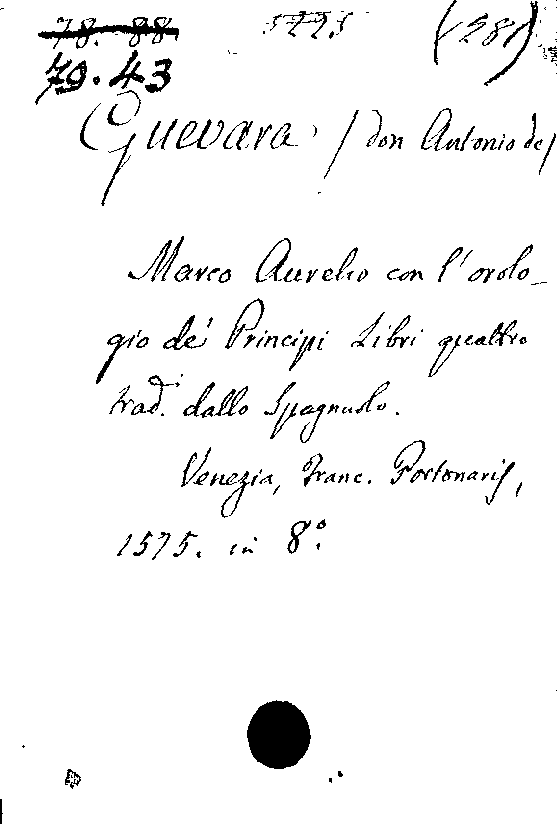 78. 88. (281)
79.43
Guevara / don Antonio de /
Marco Aurelio con l'orolo-
gio de' Principi Libri quattro
trad. dallo Spagnuolo.
Venezia, Franc. Portonaris,
1575. in 8.°